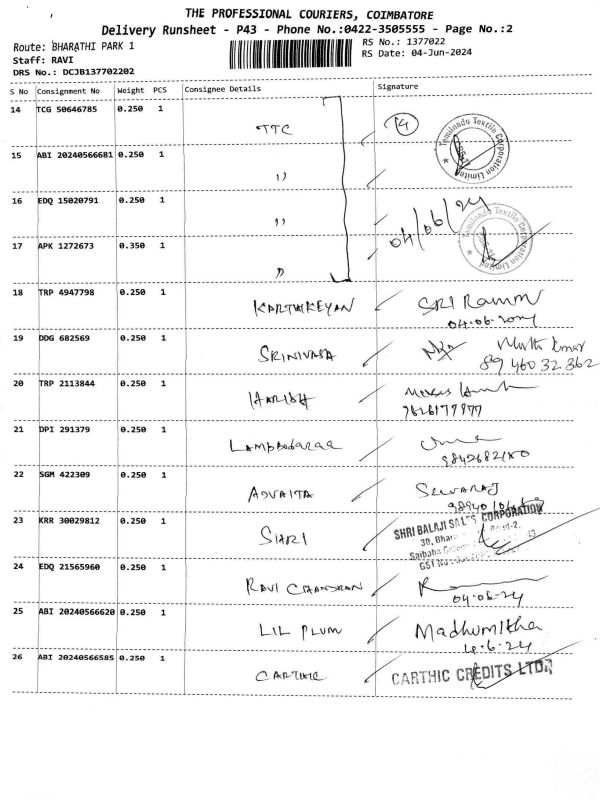 THE PROFESSIONAL COURIERS, COIMBATORE
Delivery Runsheet - P43 - Phone No.:0422-3505555 - Page No.:2
Route: BHARATHI PARK 1
RS No.: 1377022
Staff: RAVI
RS Date: 04-Jun-2024
DRS No.: DCJB137702202
S No Consignment No Weight PCS Consignee Details Signature
14 TCG 50646785 0.250 1 TTC 4
Tamilnadu Textile Corporation Limited
15 ABI 20240566681 0.250 1 ››
16 EDQ 15020791 0.250 1 ›› 04/06/24
Tamilnadu Textile Corporation Limited
17 APK 1272673 0.350 1 ››
18 TRP 4947798 0.250 1 KARTHIKEYAN SRI Ramm
04.06.2024
19 DDG 682569 0.250 1 SRINIVASA Muthu Kumar
89 460 32 362
20 TRP 2113844 0.250 1 HARISH
21 DPI 291379 0.250 1
22 SGM 422309 0.250 1 ADVAITA SELVARAJ
23 KRR 30029812 0.250 1 SHRI SHRI BALAJI SALES CORPORATION
24 EDQ 21565960 0.250 1 RAVI CHANDRAN
04.06.24
25 ABI 20240566620 0.250 1 LIL PLUM Madhumitha
4.6.24
26 ABI 20240566585 0.250 1 CARTHIC CARTHIC CREDITS LTD.